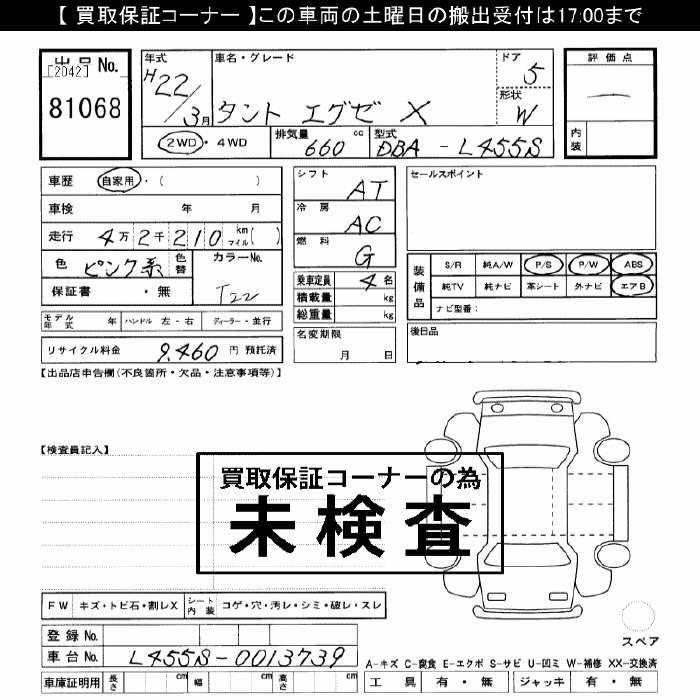 【 買取保証コーナー 】この車両の土曜日の搬出受付は17:00まで
出品 No.
[2042]
81068
年式
H22/3月
車名・グレード
タント エグゼ X
ドア
5
形状
W
評価点
内装
2WD ・ 4WD
排気量
660 cc
型式
DBA - L455S
車歴 自家用・( )
車検 年 月
走行 4万2千210 km マイル( )
色 ピンク系 色替
カラーNo.
T22
保証書 ・ 無
シフト AT
冷房 AC
燃料 G
乗車定員 4名
積載量 kg
総重量 kg
セールスポイント
装備品
S/R 純A/W P/S P/W ABS
純TV 純ナビ 革シート 外ナビ エアB
ナビ型番:
モデル年式 年 ハンドル 左・右 ディーラー・並行
名変期限
月 日
後日品
リサイクル料金 9,460 円 預託済
【出品店申告欄(不良箇所・欠品・注意事項等)】
【検査員記入】
買取保証コーナーの為
未検査
FW キズ・トビ石・割レX シート内装 コゲ・穴・汚レ・シミ・破レ・スレ
登録 No.
車台 No. L455S-0013739
車庫証明用 長さ cm 幅 cm 高さ cm
スペア
A-キズ C-腐食 E-エクボ S-サビ U-凹ミ W-補修 XX-交換済
工具 有・無 ジャッキ 有・無